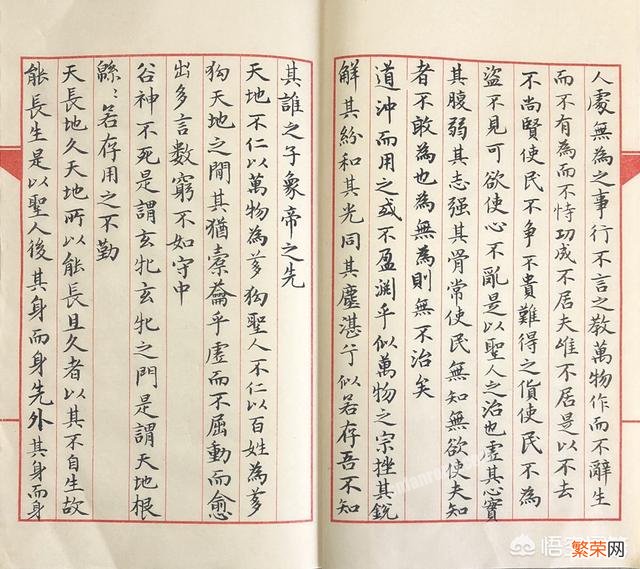 人處無為之事行不言之教萬物作而不辭生
而不有為而不恃功成不居夫唯不居是以不去
不尚賢使民不爭不貴難得之貨使民不為
盜不見可欲使心不亂是以聖人之治也虛其心實
其腹弱其志强其骨常使民無知無欲使夫知
者不敢為也為無為則無不治矣
道沖而用之或不盈淵乎似萬物之宗挫其銳
解其紛和其光同其塵湛兮似若存吾不知
其誰之子象帝之先
天地不仁以萬物為芻狗聖人不仁以百姓為芻
狗天地之間其猶橐籥乎虛而不屈動而愈
出多言數窮不如守中
谷神不死是謂玄牝玄牝之門是謂天地根
緜〻若存用之不勤
天長地久天地所以能長且久者以其不自生故
能長生是以聖人後其身而身先外其身而身
繁荣网